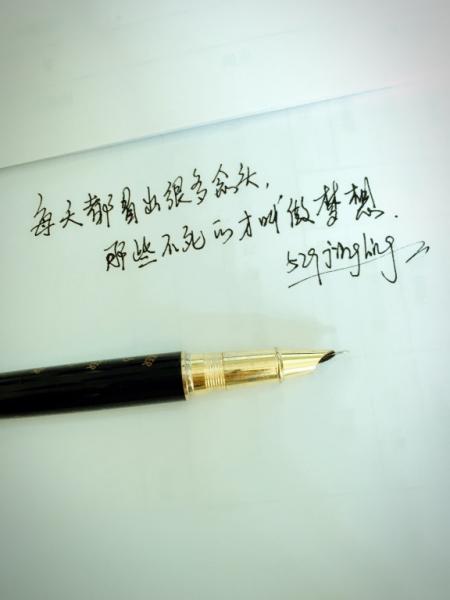 每天都冒出很多念头，
那些不死的才叫做梦想.
529jingling